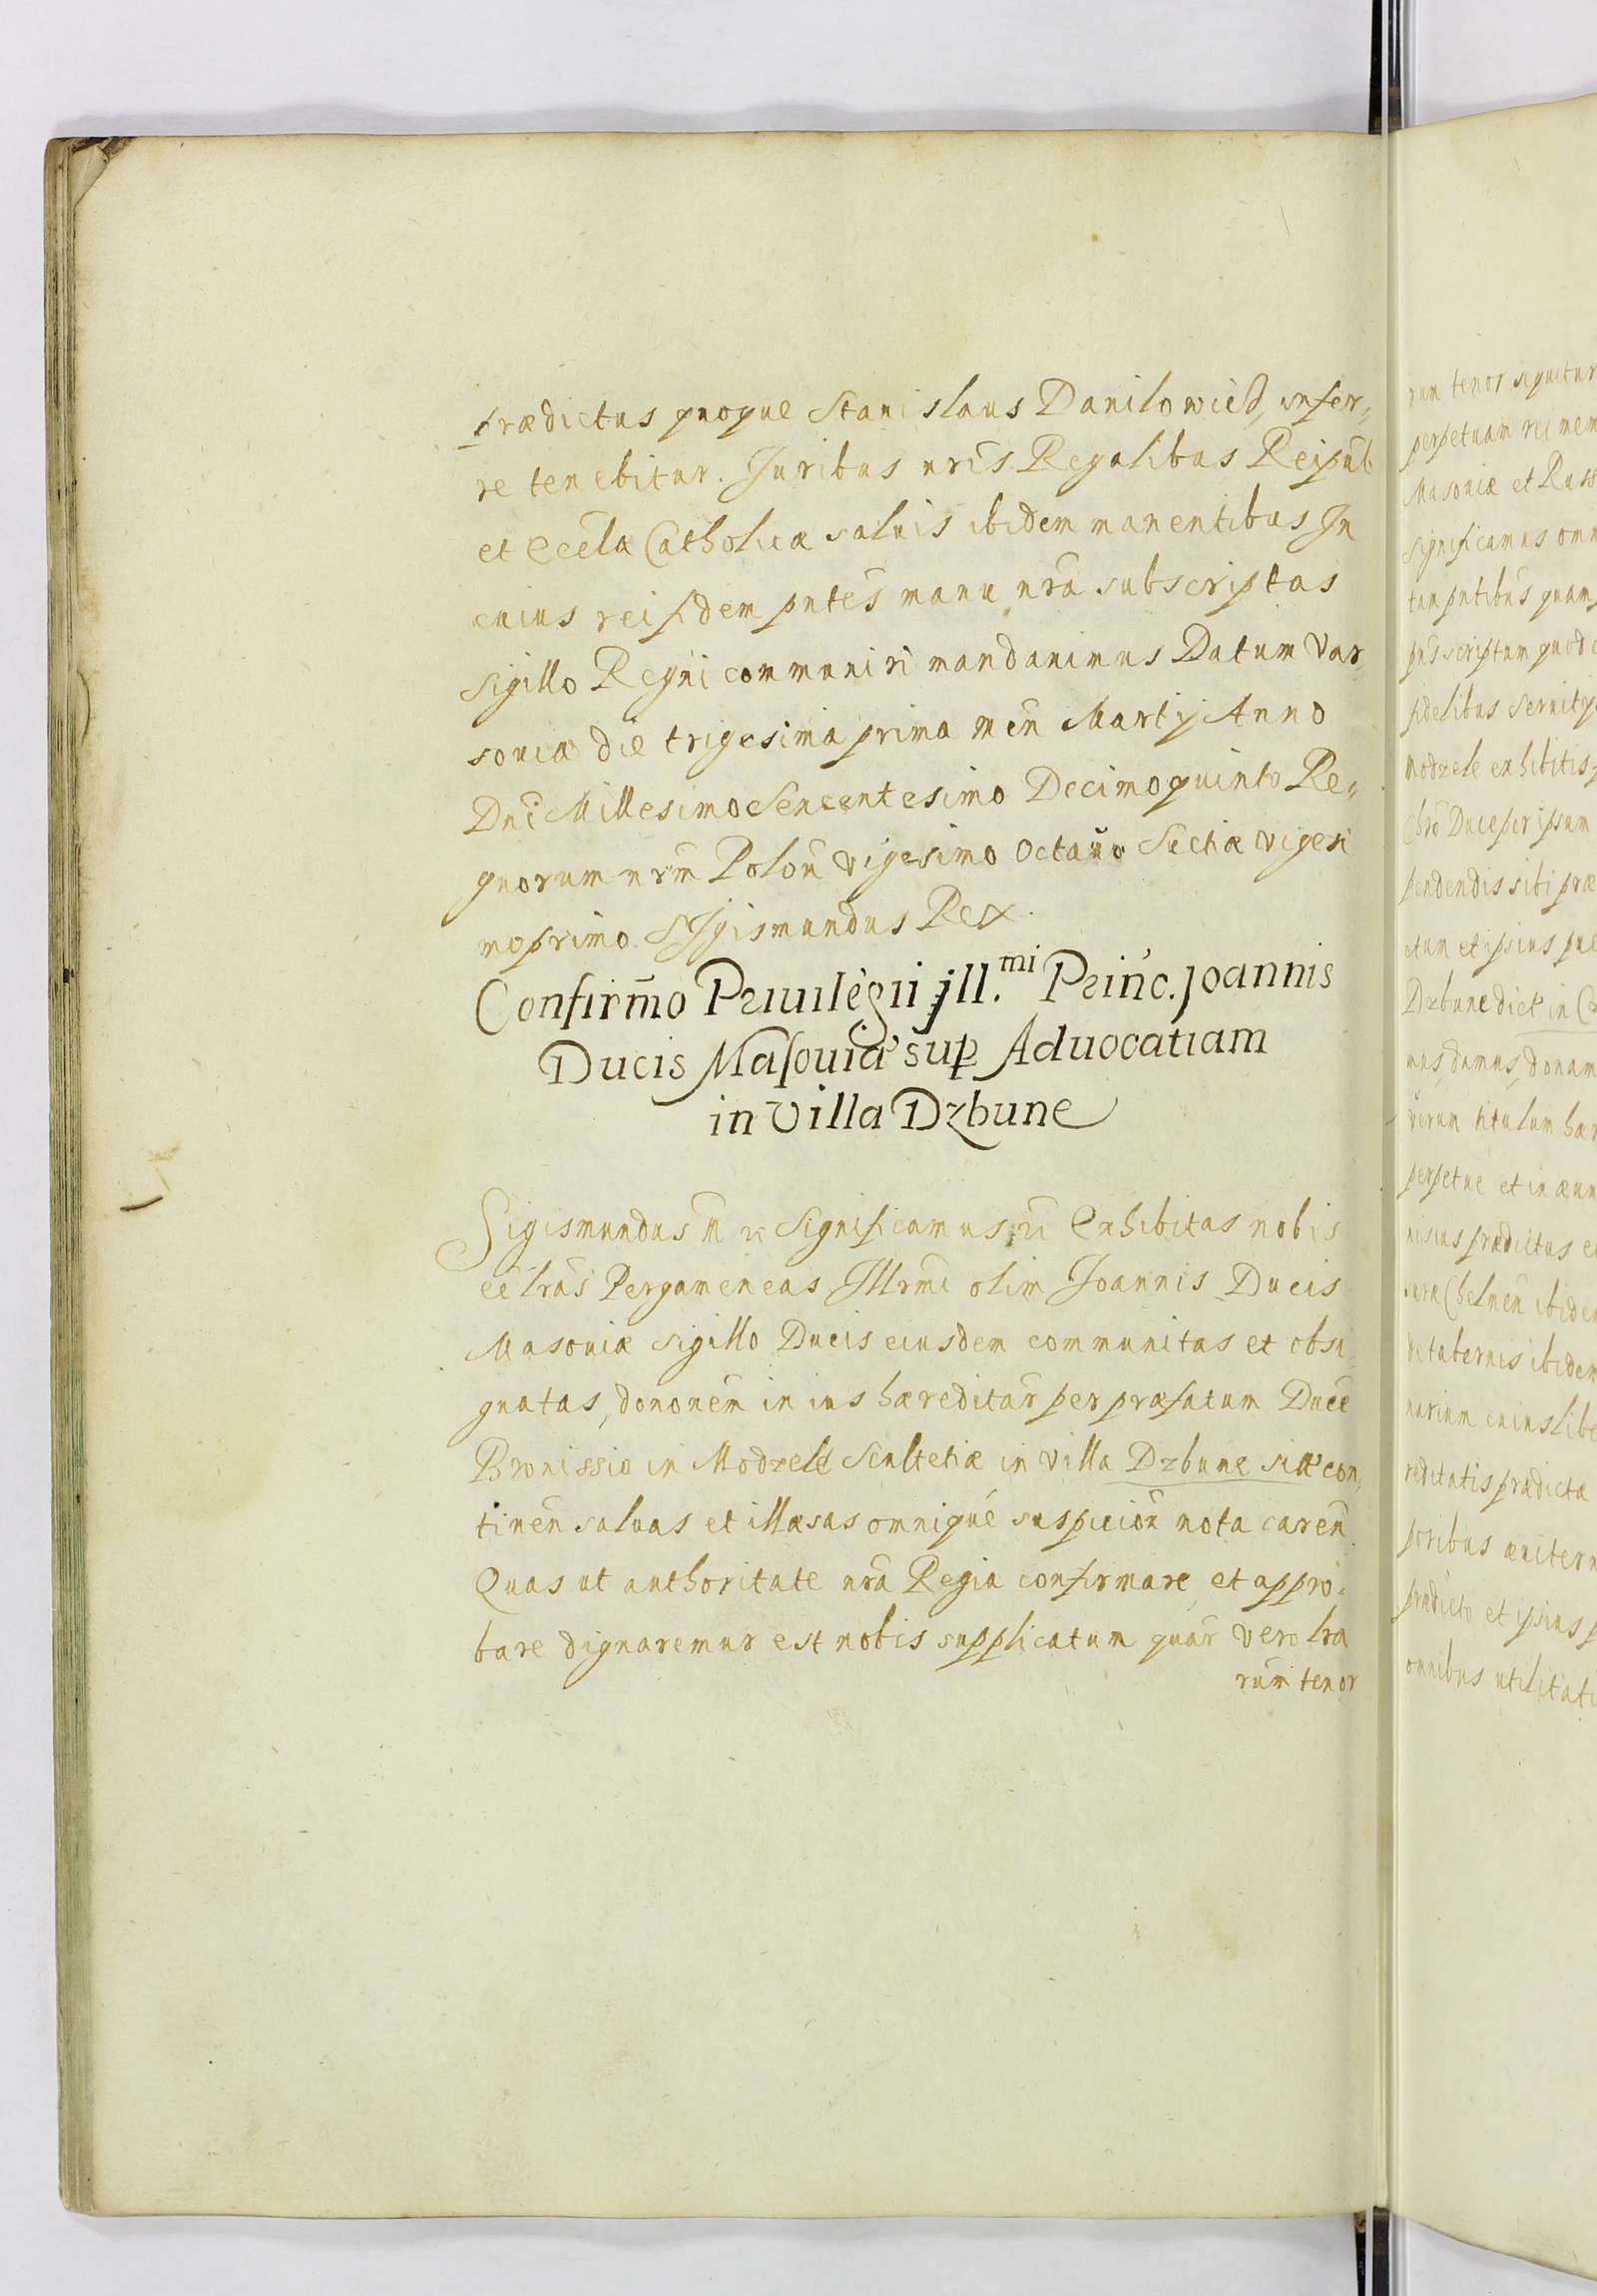 prædictus quoque Stanislaus Danilowicz, infer„
re tenebitur. Juribus nris Regalibus Reipub
et Eccla Catholicæ saluis ibidem manentibus In
cuius rei fidem pntes manu nra subscriptas
sigillo Regni communiri mandauimus Datum Var„
souiæ die trigesima prima men Martij Anno
Dni Millesimo Sexcentesimo Decimoquinto Re„
gnorum nrm Polon vigesimo octauo Sueciæ vigesi
moprimo. Sigismundus Rex.
Confirmo Priuilegii jll.mi Princ. Joannis
Ducis Masouiæ sup Aduocatiam
in Villa Dzbune
Sigismundus Significamus Exhibitas nobis
eē lras Pergameneas Illrmi olim Joannis Ducis
Masouiæ sigillo Ducis eiusdem communitas et obsi„
gnatas, dononem in ius hæreditar per præfatum Duce
Bronissio in Modzele Scultetiæ in villa Dzbune sitæ con„
tinen saluas et illæsas omnique suspicion nota caren
Quas ut authoritate nra Regia confirmare, et appro„
bare dignaremur est nobis supplicatum quar vero lra
rum tenor
rum tenor sequitur
perpetuam rei mem
Masouiæ et Russ
significamus omn
tam pntibus quam
pns scriptum quod
fidelibus seruitys
Modzele exhibitis
Chro Duce per ipsum
pendendis sibi præ
etum et ipsius pue
Dzbune dict in
mus, damus, donam
verum titulum hær
perpetue et in æuu
nisius prædictus et
iure Chelmen ibidem
de tabernis ibidem
narium cuiuslibe
reditatis prædictæ
poribus æuitern
prædicto et ipsius p
omnibus utilitati